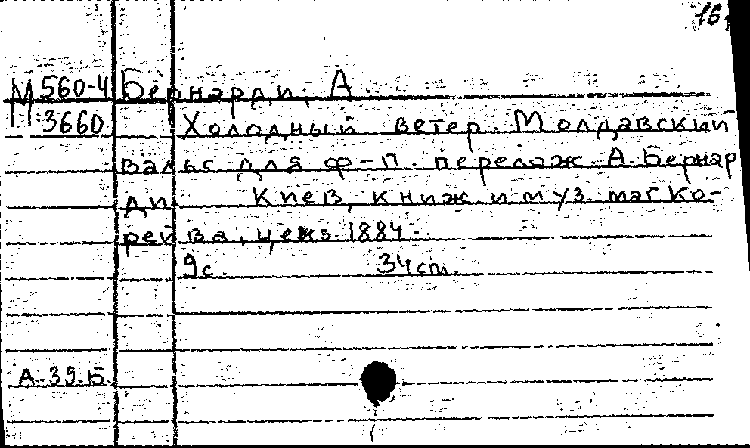 16
М 560-4 Бернарди, А
3660 Холодный ветер. Молдавский
вальс для ф-п. перелож. А. Бернар
ди Киев, книж. и муз. маг. Ко-
рейва, ценз. 1884.
9с. 34 cm.
А-39.Б.